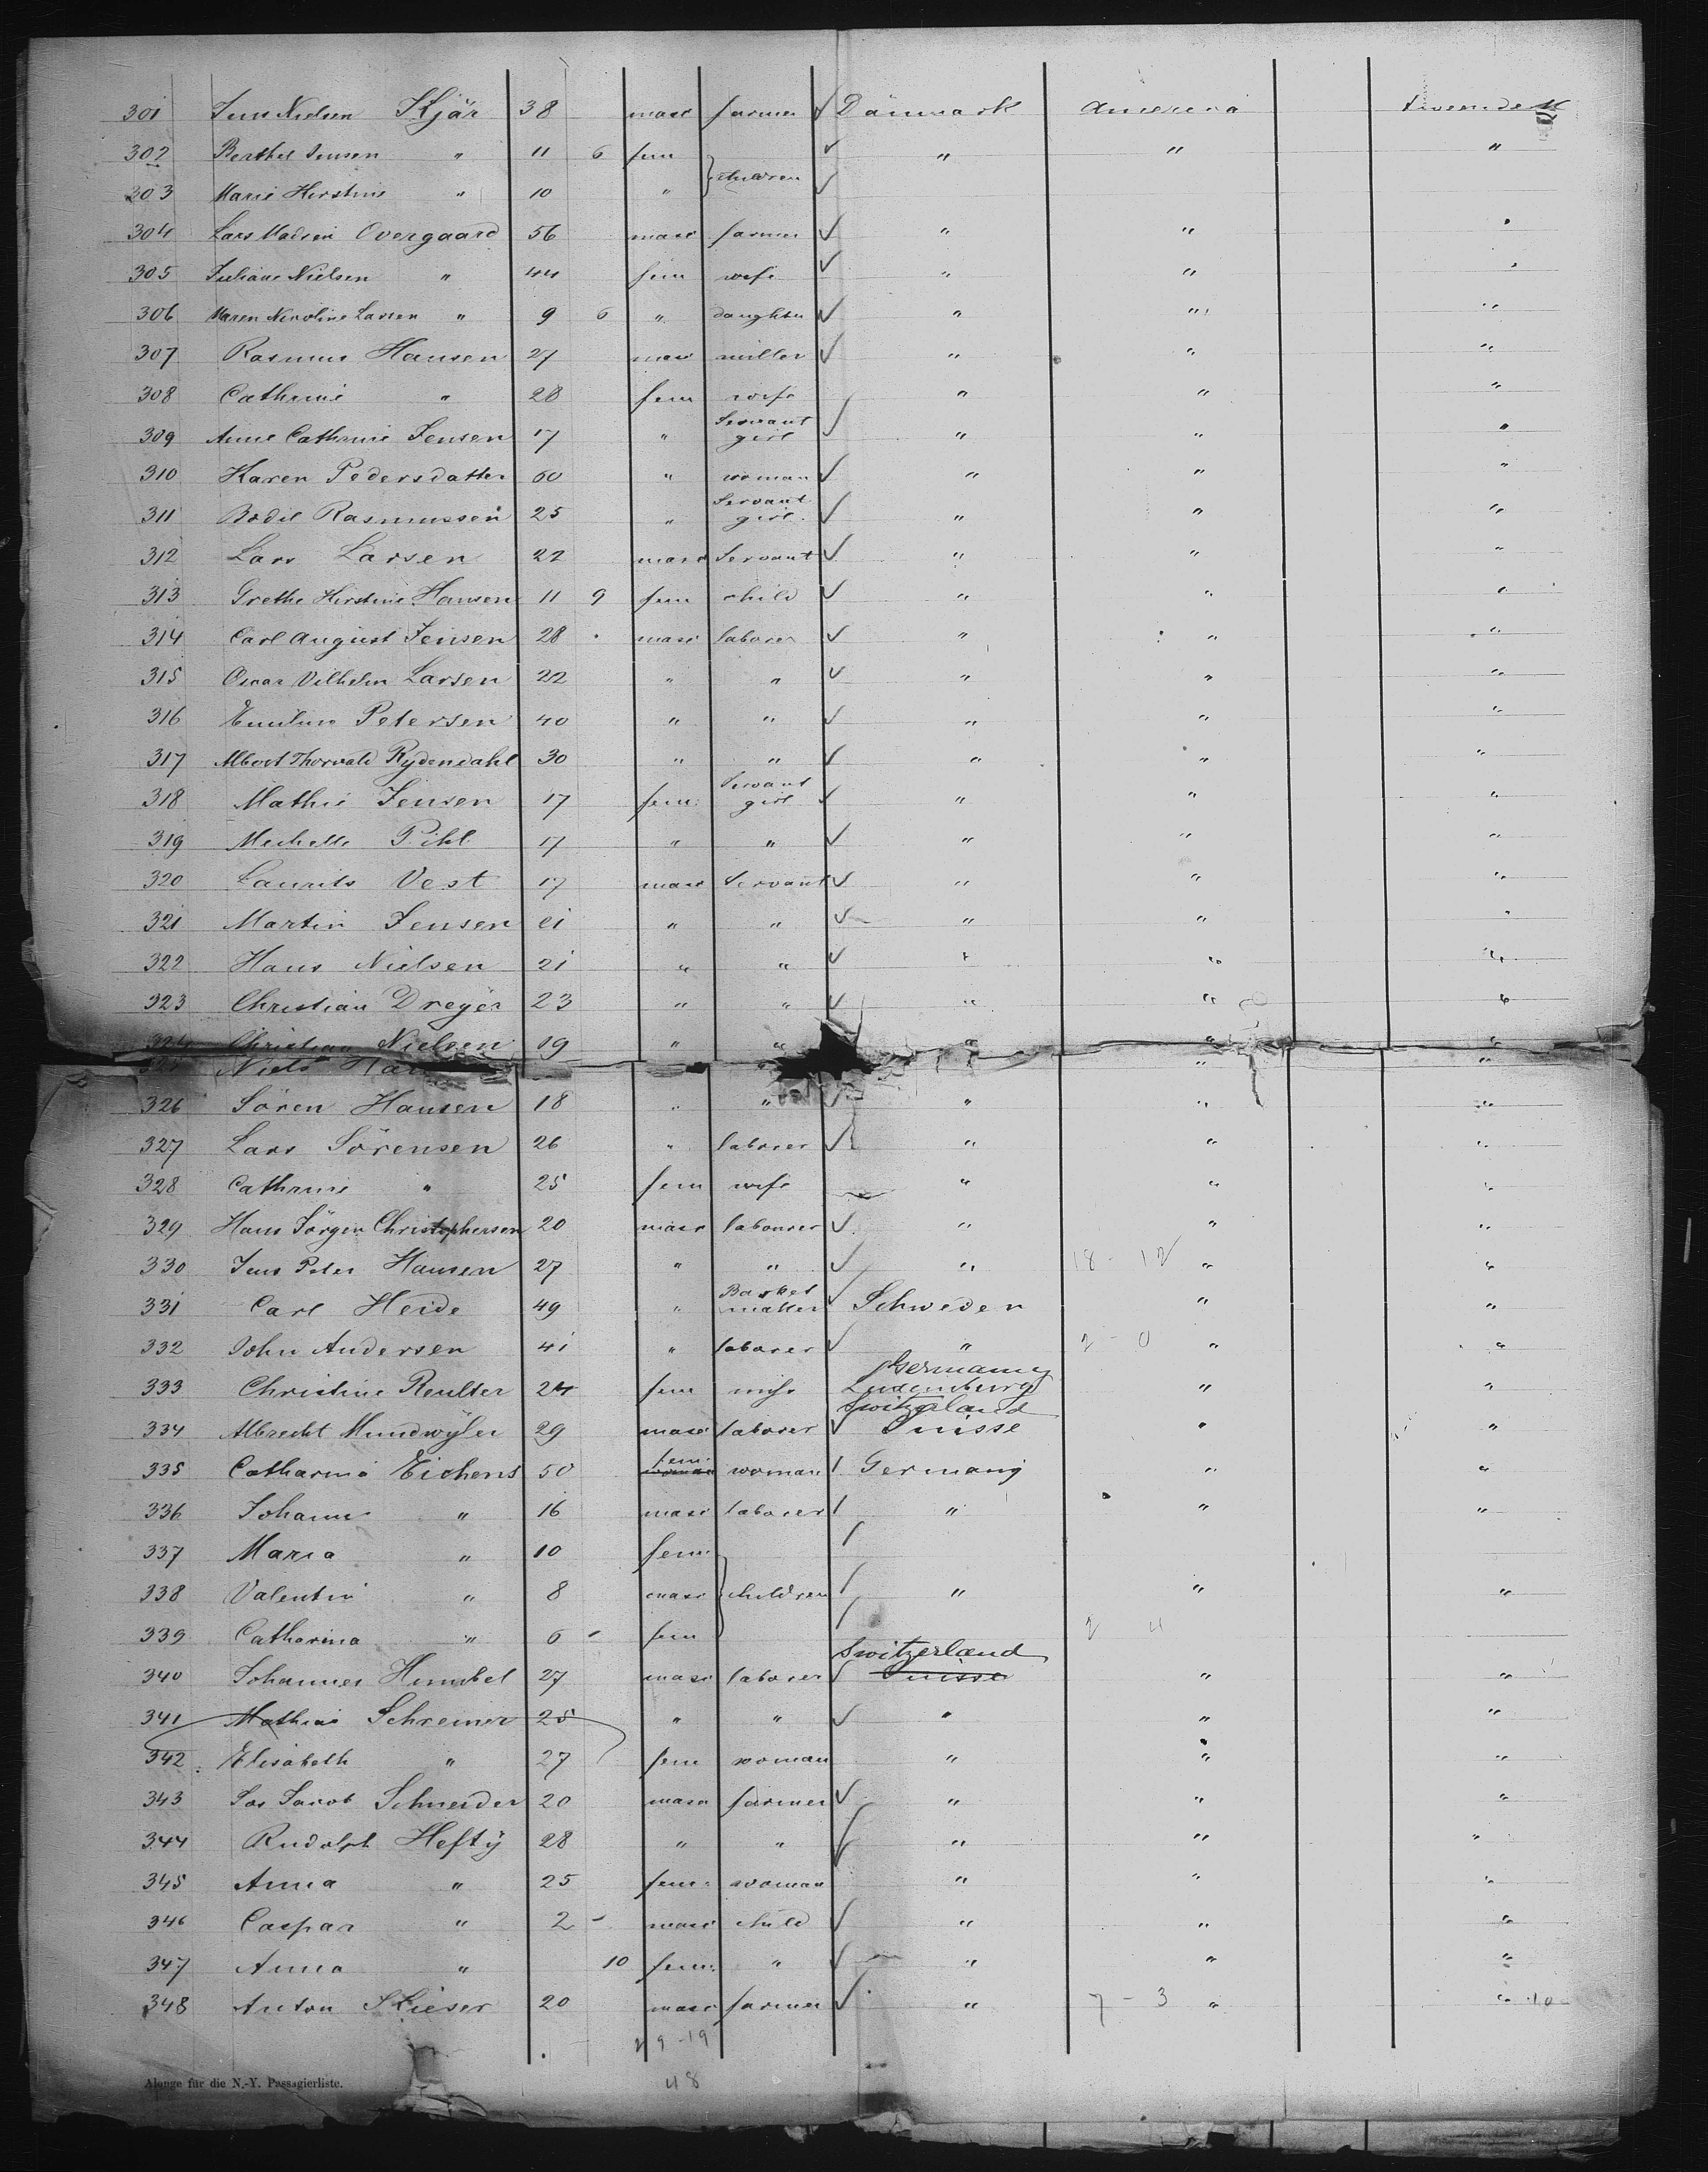 301 Jens Nielsen Kjär 38 masc farmer ✓ Dänmark America Tweendeck
302 Berthel Jensen " 11 6 fem } children ✓ " " "
303 Marie Kirstine " 10 " ✓
304 Lars Madsen Overgaard 56 masc farmer ✓ " " "
305 Juliane Nielsen " 44 fem wife ✓ " " "
306 Maren Nicoline Larsen " 9 6 " daughter ✓ " " "
307 Rasmus Hansen 27 masc miller ✓ " " "
308 Cathrine " 28 fem wife " " "
309 Anne Cathrine Jensen 17 " Servant girl ✓ " " "
310 Karen Pedersdatter 60 " woman ✓ " " "
311 Bodil Rasmussen 25 " Servant girl ✓ " " "
312 Lars Larsen 22 masc Servant ✓ " " "
313 Grethe Kirstine Hansen 11 9 fem child ✓ " " "
314 Carl August Jensen 28 masc laborer ✓ " " "
315 Oscar Vilhelm Larsen 22 " " ✓ " " "
316 Emilius Petersen 40 " " ✓ " " "
317 Albert Thorvald Rydendahl 30 " " ✓ " " "
318 Mathie Jensen 17 fem. Servant girl ✓ " " "
319 Pihl 17 " " ✓ " " "
320 Laurits Vest 17 masc Servant ✓ " " "
321 Martin Jensen 21 " " ✓ " " "
322 Hans Nielsen 21 " " ✓ " " "
323 Christian Dreyer 23 " " ✓ " " "
324 Christian Nielsen 19 " " " " "
325 Niels " " "
326 Sören Hansen 18 " " ✓ " " "
327 Lars Sörensen 26 " laborer ✓ " " "
328 Cathrine " 25 fem wife " " "
329 Hans Jörgen Christophersen 20 masc labourer ✓ " " "
330 Jens Peter Hansen 27 " " ✓ " 18 - 12 " "
331 Carl Heide 49 " Basket maker ✓ Schweden " "
332 John Andersen 41 " laborer ✓ " 2 - 0 " "
333 Christine Reulter 24 fem wife Germany Luxemburg " "
334 Albrecht Mundwyler 29 masc laborer ✓ Switzerland Suisse " "
335 Catharina Eichens 50 fem. woman woman / Germany " "
336 Johann " 16 masc laborer / " " "
337 Maria " 10 fem. /
338 Valentin " 8 masc } children / " " "
339 Catharina " 6 - fem / 2 4
340 Johannes Humbel 27 masc laborer ✓ Switzerland Suisse " "
341 Mathias Schreiner 25 " " ✓ " " "
342 Elisabeth " 27 fem woman " " "
343 Jos Jacob Schneider 20 masc farmer ✓ " " "
344 Rudolph Hefty 28 " " ✓ " " "
345 Anna " 25 fem. woman " " "
346 Caspar " 2 - masc child ✓ " " "
347 Anna " 10 fem. " ✓ " " "
348 Anton Kieser 20 masc farmer ✓ " 7 - 3 " " 10
29 - 19
48
Alonge für die N.-Y. Passagierliste.